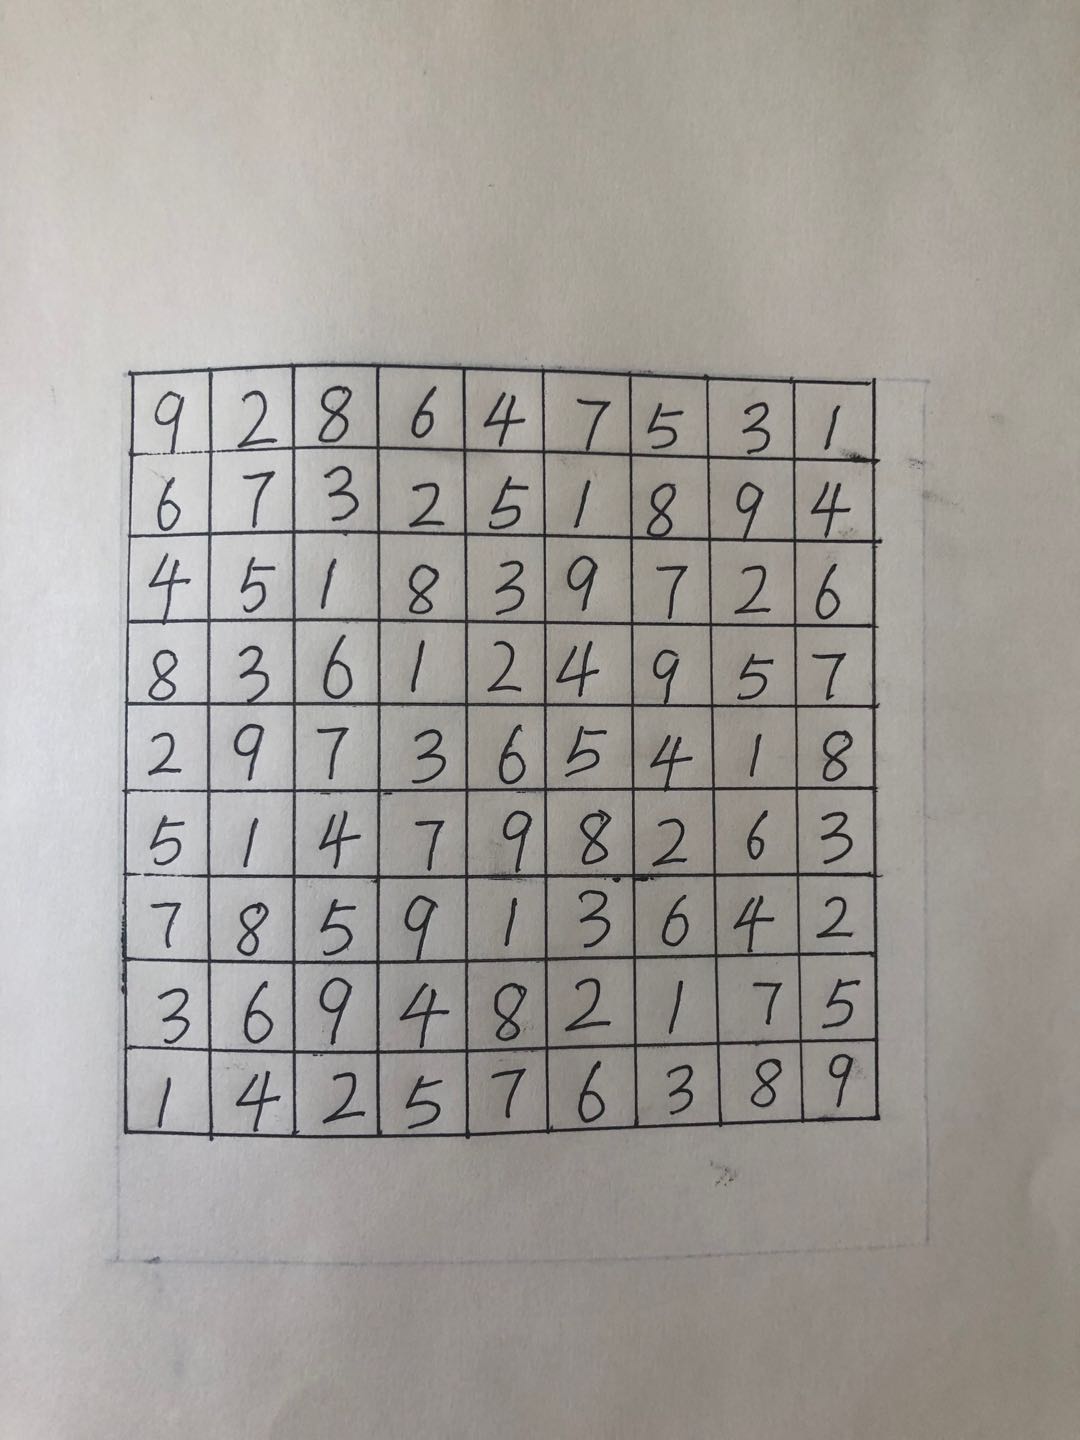 9 2 8 6 4 7 5 3 1
6 7 3 2 5 1 8 9 4
4 5 1 8 3 9 7 2 6
8 3 6 1 2 4 9 5 7
2 9 7 3 6 5 4 1 8
5 1 4 7 9 8 2 6 3
7 8 5 9 1 3 6 4 2
3 6 9 4 8 2 1 7 5
1 4 2 5 7 6 3 8 9